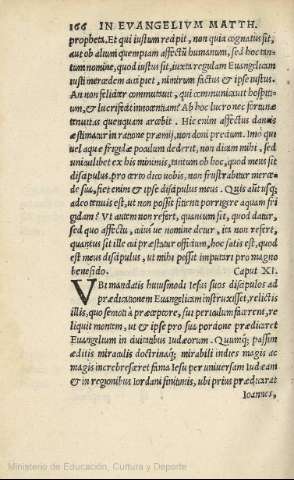 166 IN EVANGELIVM MATTH.
prophetæ. Et qui iustum recipit, non quia cognatus sit,
aut ob alium quempiam affectū humanum, sed hoc tan-
tum nomine, quod iustus sit, iuxta regulam Euangelicam
iusti mercedem accipiet, nimirum factus & ipse iustus.
An non feliciter commutauit, qui communicauit hospiti-
um, & lucrifecit innocentiam? Ab hoc lucro nec fortunæ
tenuitas quenquam arcebit. Hic enim affectus dantis
æstimatur in ratione præmij, non doni precium. Imo qui
vel aquæ frigidæ poculum dederit, non dicam mihi, sed
vnicuilibet ex his minimis, tantum ob hoc, quod meus sit
discipulus. pro certo dico vobis, non frustrabitur merce-
de sua, fiet enim & ipse discipulus meus. Quis aut usq;
adeo tenuis est, ut non possit sitienti porrigere aquam fri
gidam? Vt autem non refert, quantum sit, quod datur,
sed quo affectu, cuius ue nomine detur, ita non refert,
quantus sit ille cui præstatur officium, hoc satis est, quod
est meus discipulus, ut mihi posset imputari pro magno
beneficio. Caput XI.
VBi mandatis huiusmodi Iesus suos discipulos ad
prædicationem Euangelicam instruxisset, relictis
illis, quo semoti à præceptore, sui periculum facerent, re
liquit montem, ut & ipse pro sua portione prædicaret
Euangelium in ciuitatibus Iudæorum. Quumq; passim
æditis miraculis doctrinaq; mirabili indies magis ac
magis increbresceret fama Iesu per uniuersam Iudæam
& in regionibus Iordani finitimis, ubi prius prædicarat
Ioannes,
Ministerio de Educación, Cultura y Deporte